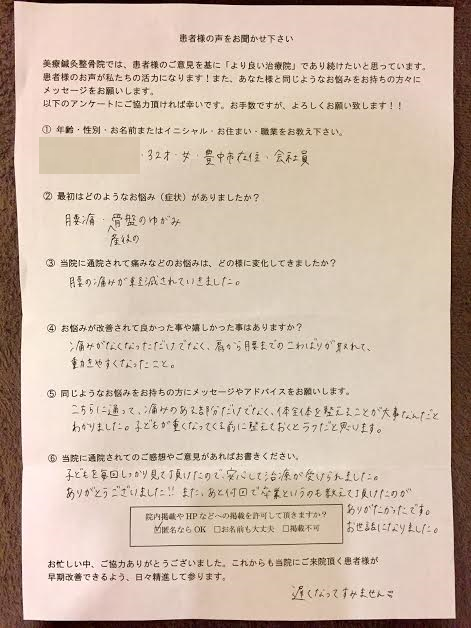 患者様の声をお聞かせ下さい
美療鍼灸整骨院では、患者様のご意見を基に「より良い治療院」であり続けたいと思っています。
患者様のお声が私たちの活力になります！また、あなた様と同じようなお悩みをお持ちの方々に
メッセージをお願いします。
以下のアンケートにご協力頂ければ幸いです。お手数ですが、よろしくお願い致します！！
① 年齢・性別・お名前またはイニシャル・お住まい・職業をお教え下さい。
・32才・女・豊中市在住・会社員
② 最初はどのようなお悩み（症状）がありましたか？
腰痛・骨盤のゆがみ
産後の
③ 当院に通院されて痛みなどのお悩みは、どの様に変化してきましたか？
腰の痛みが軽減されていきました。
④ お悩みが改善されて良かった事や嬉しかった事はありますか？
痛みがなくなっただけでなく、肩から腰までのこわばりが取れて、
動きやすくなったこと。
⑤ 同じようなお悩みをお持ちの方にメッセージやアドバイスをお願いします。
こちらに通って、痛みのある部分だけでなく、体全体を整えることが大事なんだと
わかりました。子どもが重くなってくる前に整えておくとラクだと思います。
⑥ 当院に通院されてのご感想やご意見があればお書きください。
子どもを毎回しっかり見て頂けたので、安心して治療が受けられました。
ありがとうございました!! また、あと何回で卒業というのも教えて頂けたのが
ありがたかったです。
お世話になりました。
院内掲載や HP などへの掲載を許可して頂けますか？
☑匿名なら OK　□お名前も大丈夫　□掲載不可
お忙しい中、ご協力ありがとうございました。これからも当院にご来院頂く患者様が
早期改善できるよう、日々精進して参ります。
遅くなってすみません